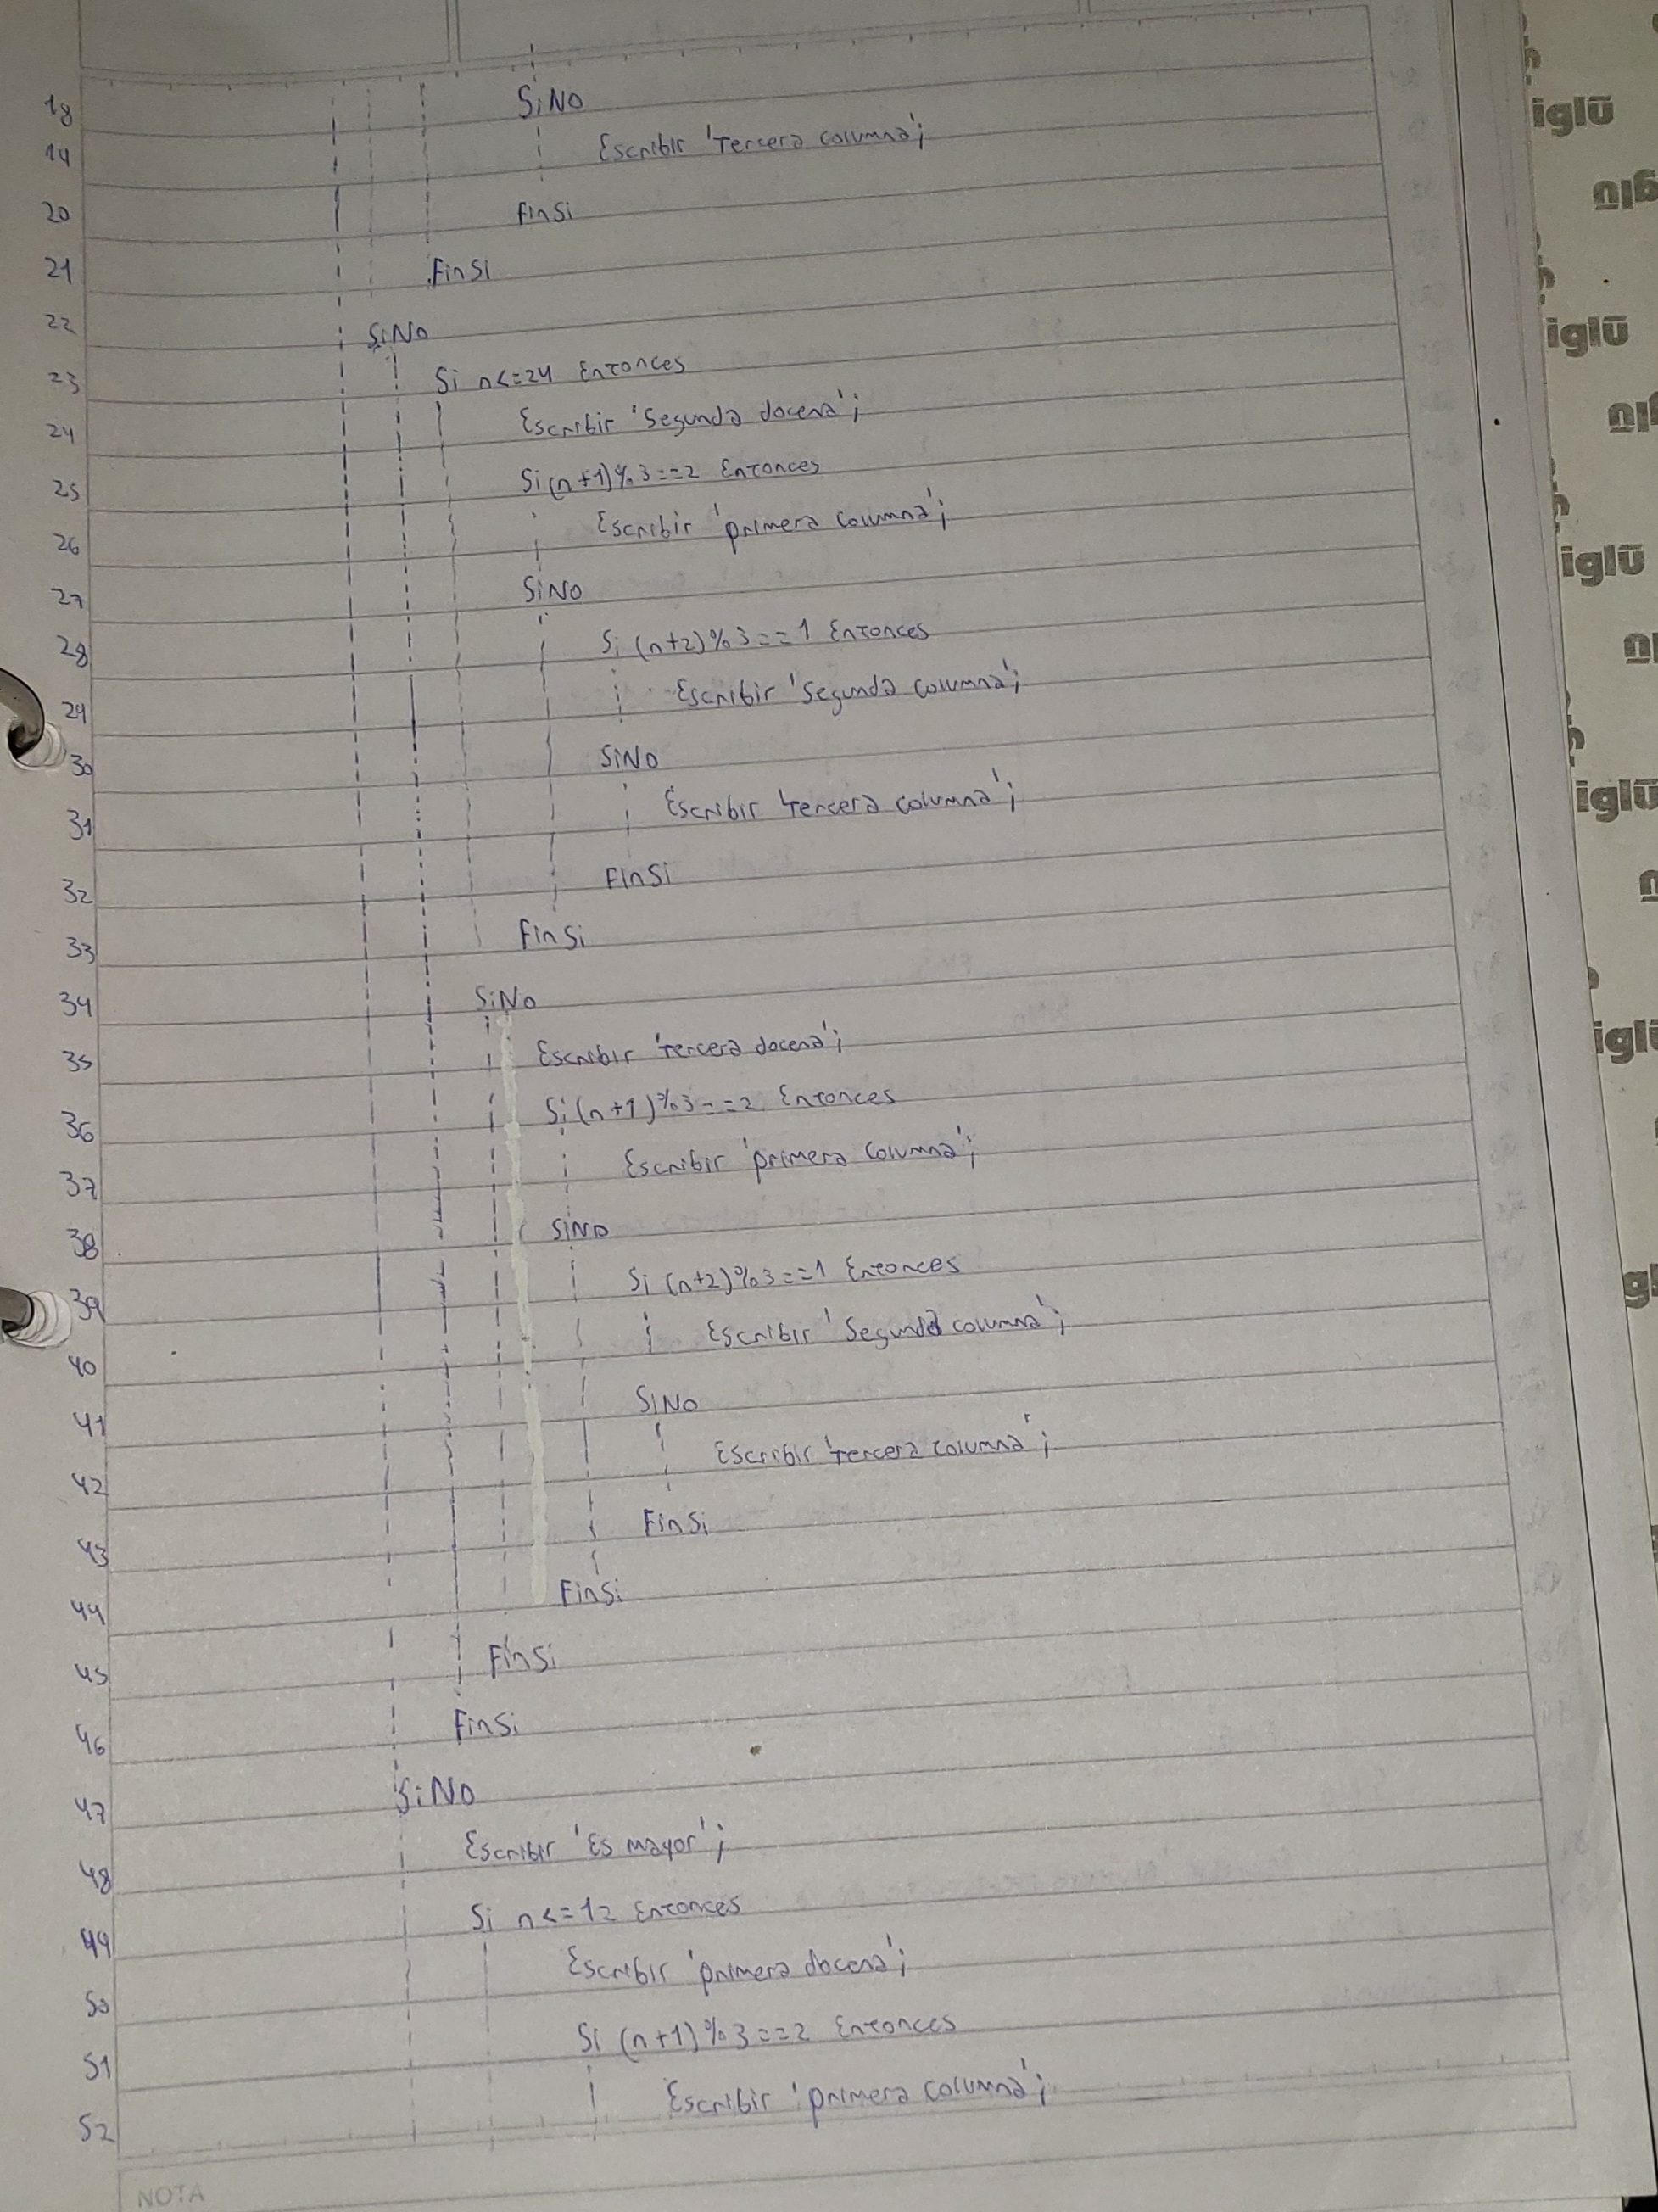 18 SiNo
19 Escribir 'Tercera columna';
20 FinSi
21 FinSi
22 SiNo
23 Si n<=24 Entonces
24 Escribir 'Segunda docena';
25 Si (n+1)%3==2 Entonces
26 Escribir 'primera columna';
27 SiNo
28 Si (n+2)%3==1 Entonces
29 Escribir 'Segunda columna';
30 SiNo
31 Escribir 'tercera columna';
32 FinSi
33 FinSi
34 SiNo
35 Escribir 'tercera docena';
36 Si (n+1)%3==2 Entonces
37 Escribir 'primera columna';
38 SiNo
39 Si (n+2)%3==1 Entonces
40 Escribir 'Segunda columna';
41 SiNo
42 Escribir 'tercera columna';
43 FinSi
44 FinSi
45 FinSi
46 FinSi
47 SiNo
48 Escribir 'Es mayor';
49 Si n<=12 Entonces
50 Escribir 'primera docena';
51 Si (n+1)%3==2 Entonces
52 Escribir 'primera columna';
NOTA
iglū
iglū
iglū
iglū
iglū